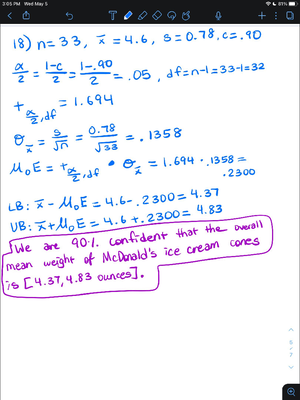 3:05 PM Wed May 5
81%
18) n=33, x̄ = 4.6, s = 0.78, c = .90
α/2 = 1-c/2 = 1-.90/2 = .05, df=n-1=33-1=32
t α/2, df = 1.694
σx̄ = s/√n = 0.78/√33 = .1358
MoE = t α/2, df • σx̄ = 1.694 · .1358 =
.2300
LB: x̄ - MoE = 4.6 - .2300 = 4.37
UB: x̄ + MoE = 4.6 + .2300 = 4.83
We are 90% confident that the overall
mean weight of McDonald's ice cream cones
is [4.37, 4.83 ounces].